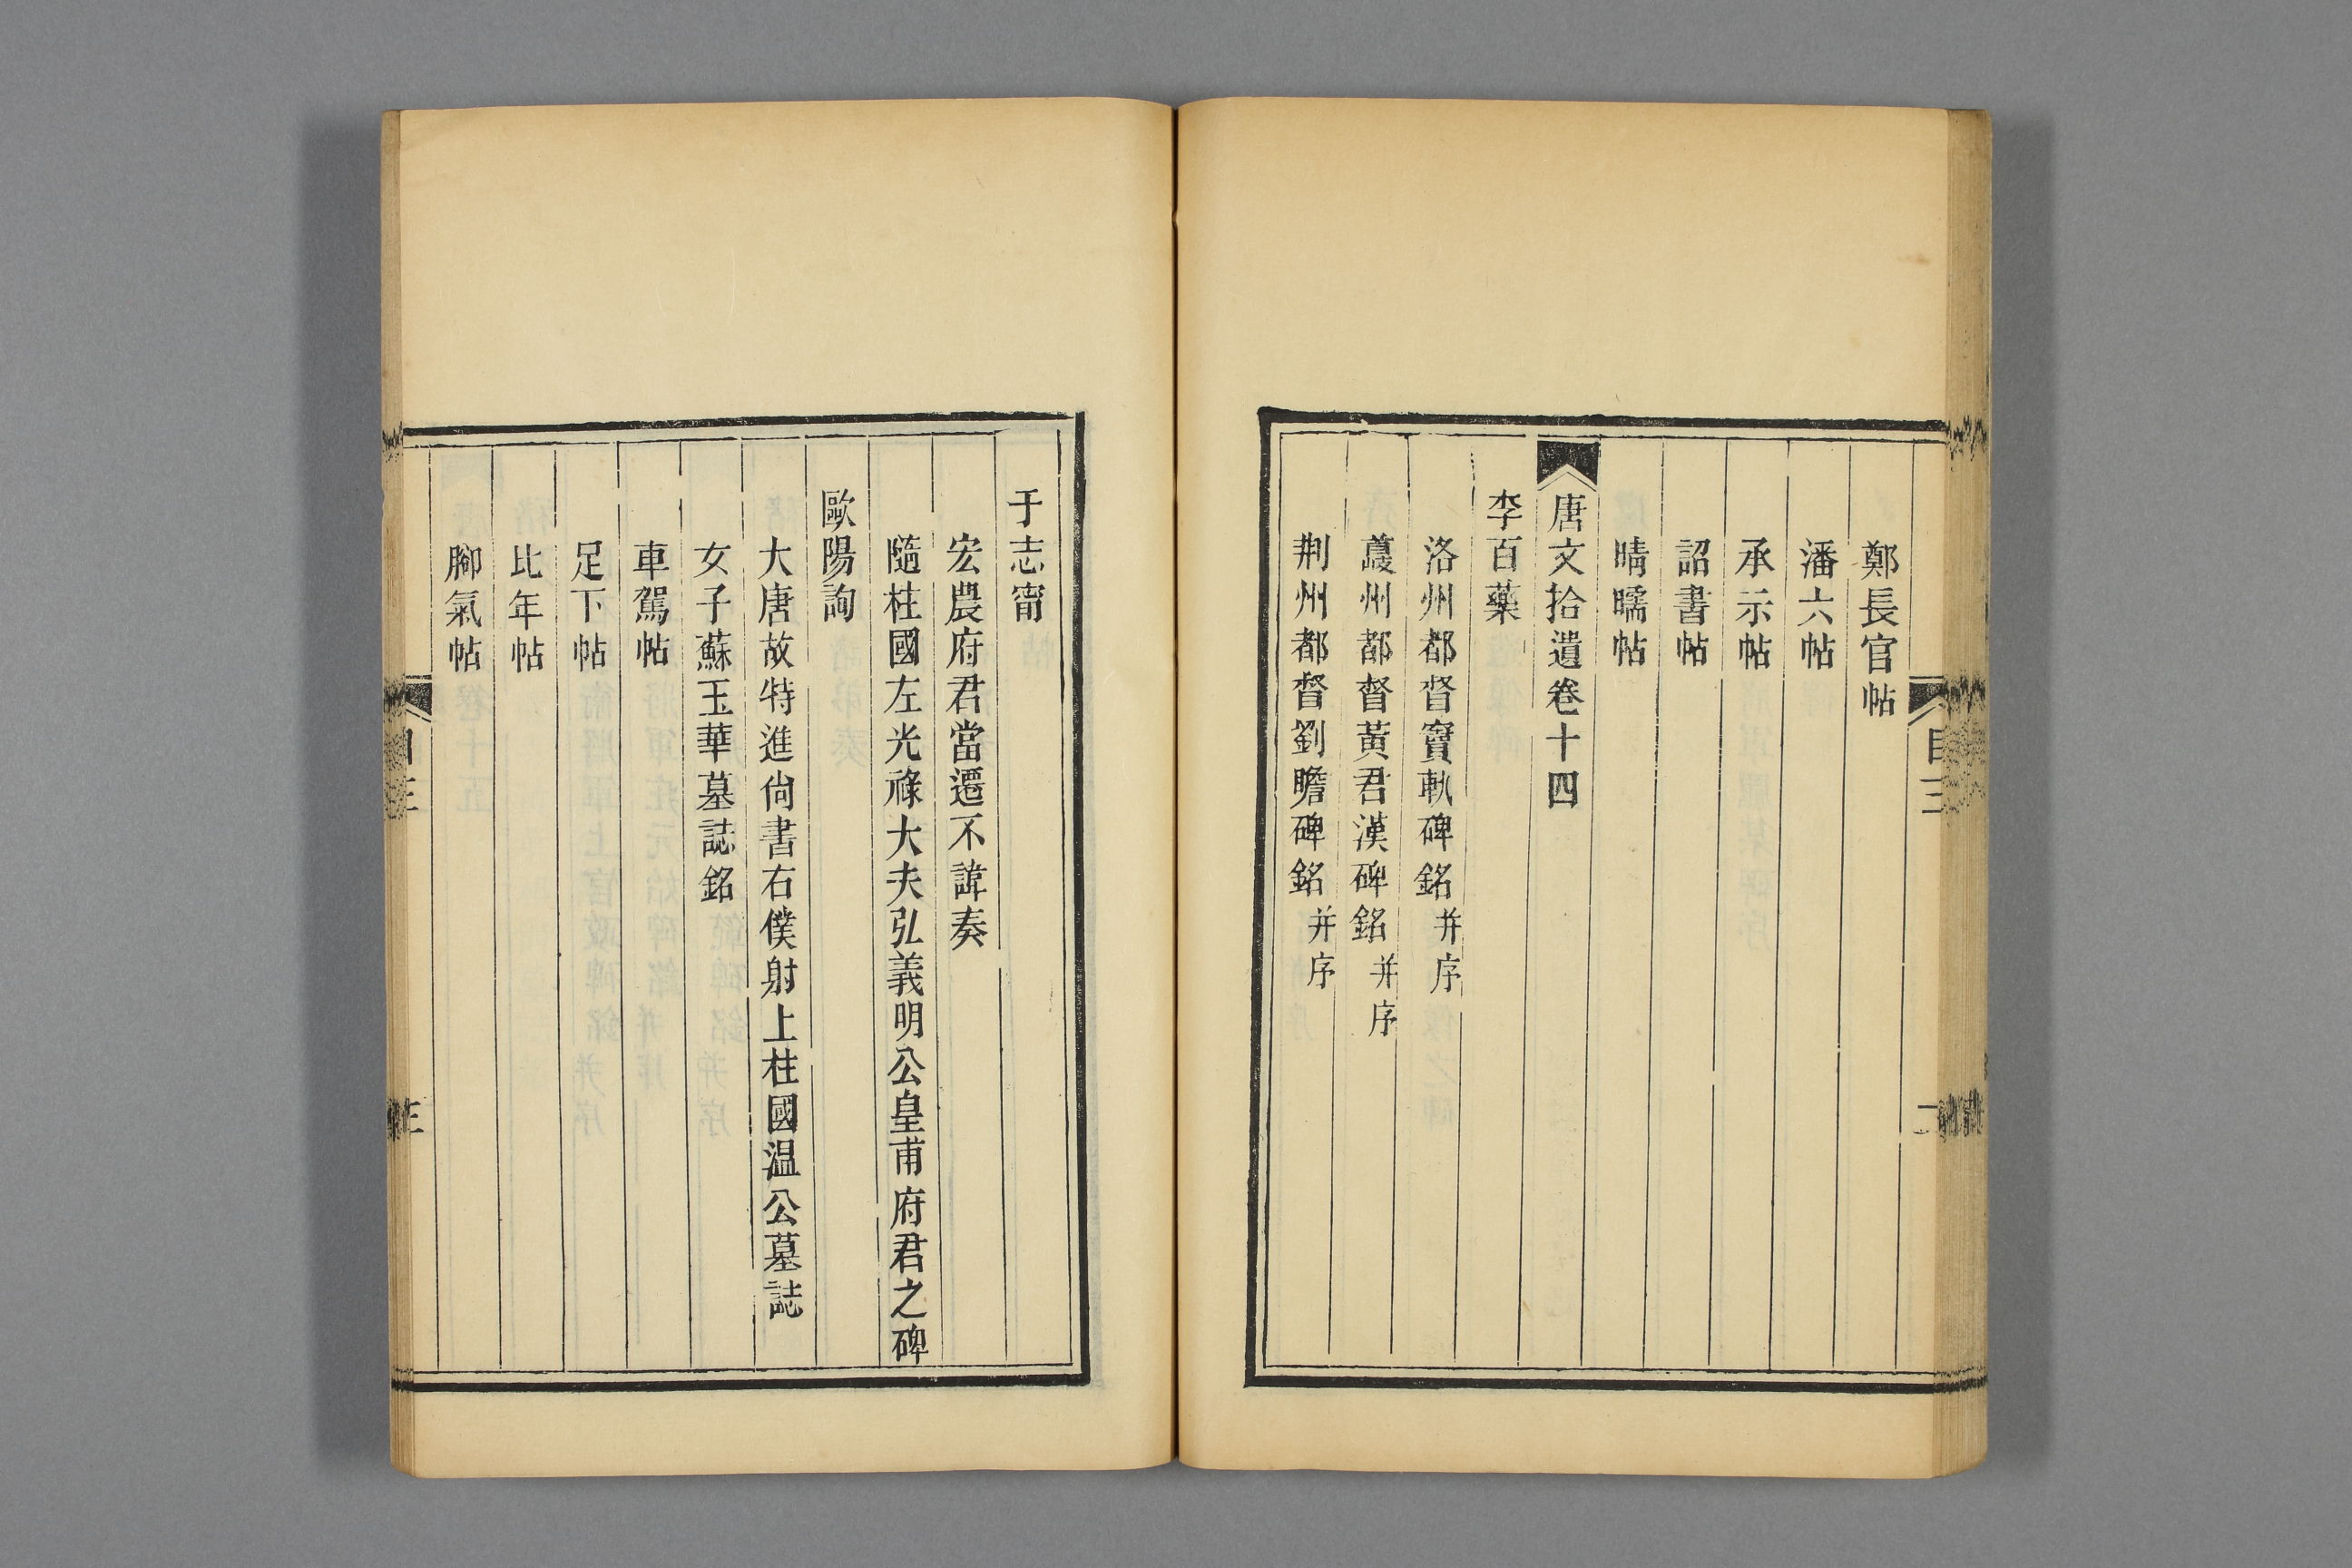 鄭長官帖
潘六帖
承示帖
詔書帖
晴曘帖
唐文拾遺卷十四
李百藥
洛州都督竇軌碑銘并序
夔州都督黃君漢碑銘并序
荆州都督劉瞻碑銘并序
于志甯
宏農府君當遷不諱奏
隨柱國左光祿大夫弘義明公皇甫府君之碑
歐陽詢
大唐故特進尙書右僕射上柱國温公墓誌
女子蘇玉華墓誌銘
車駕帖
足下帖
比年帖
腳氣帖